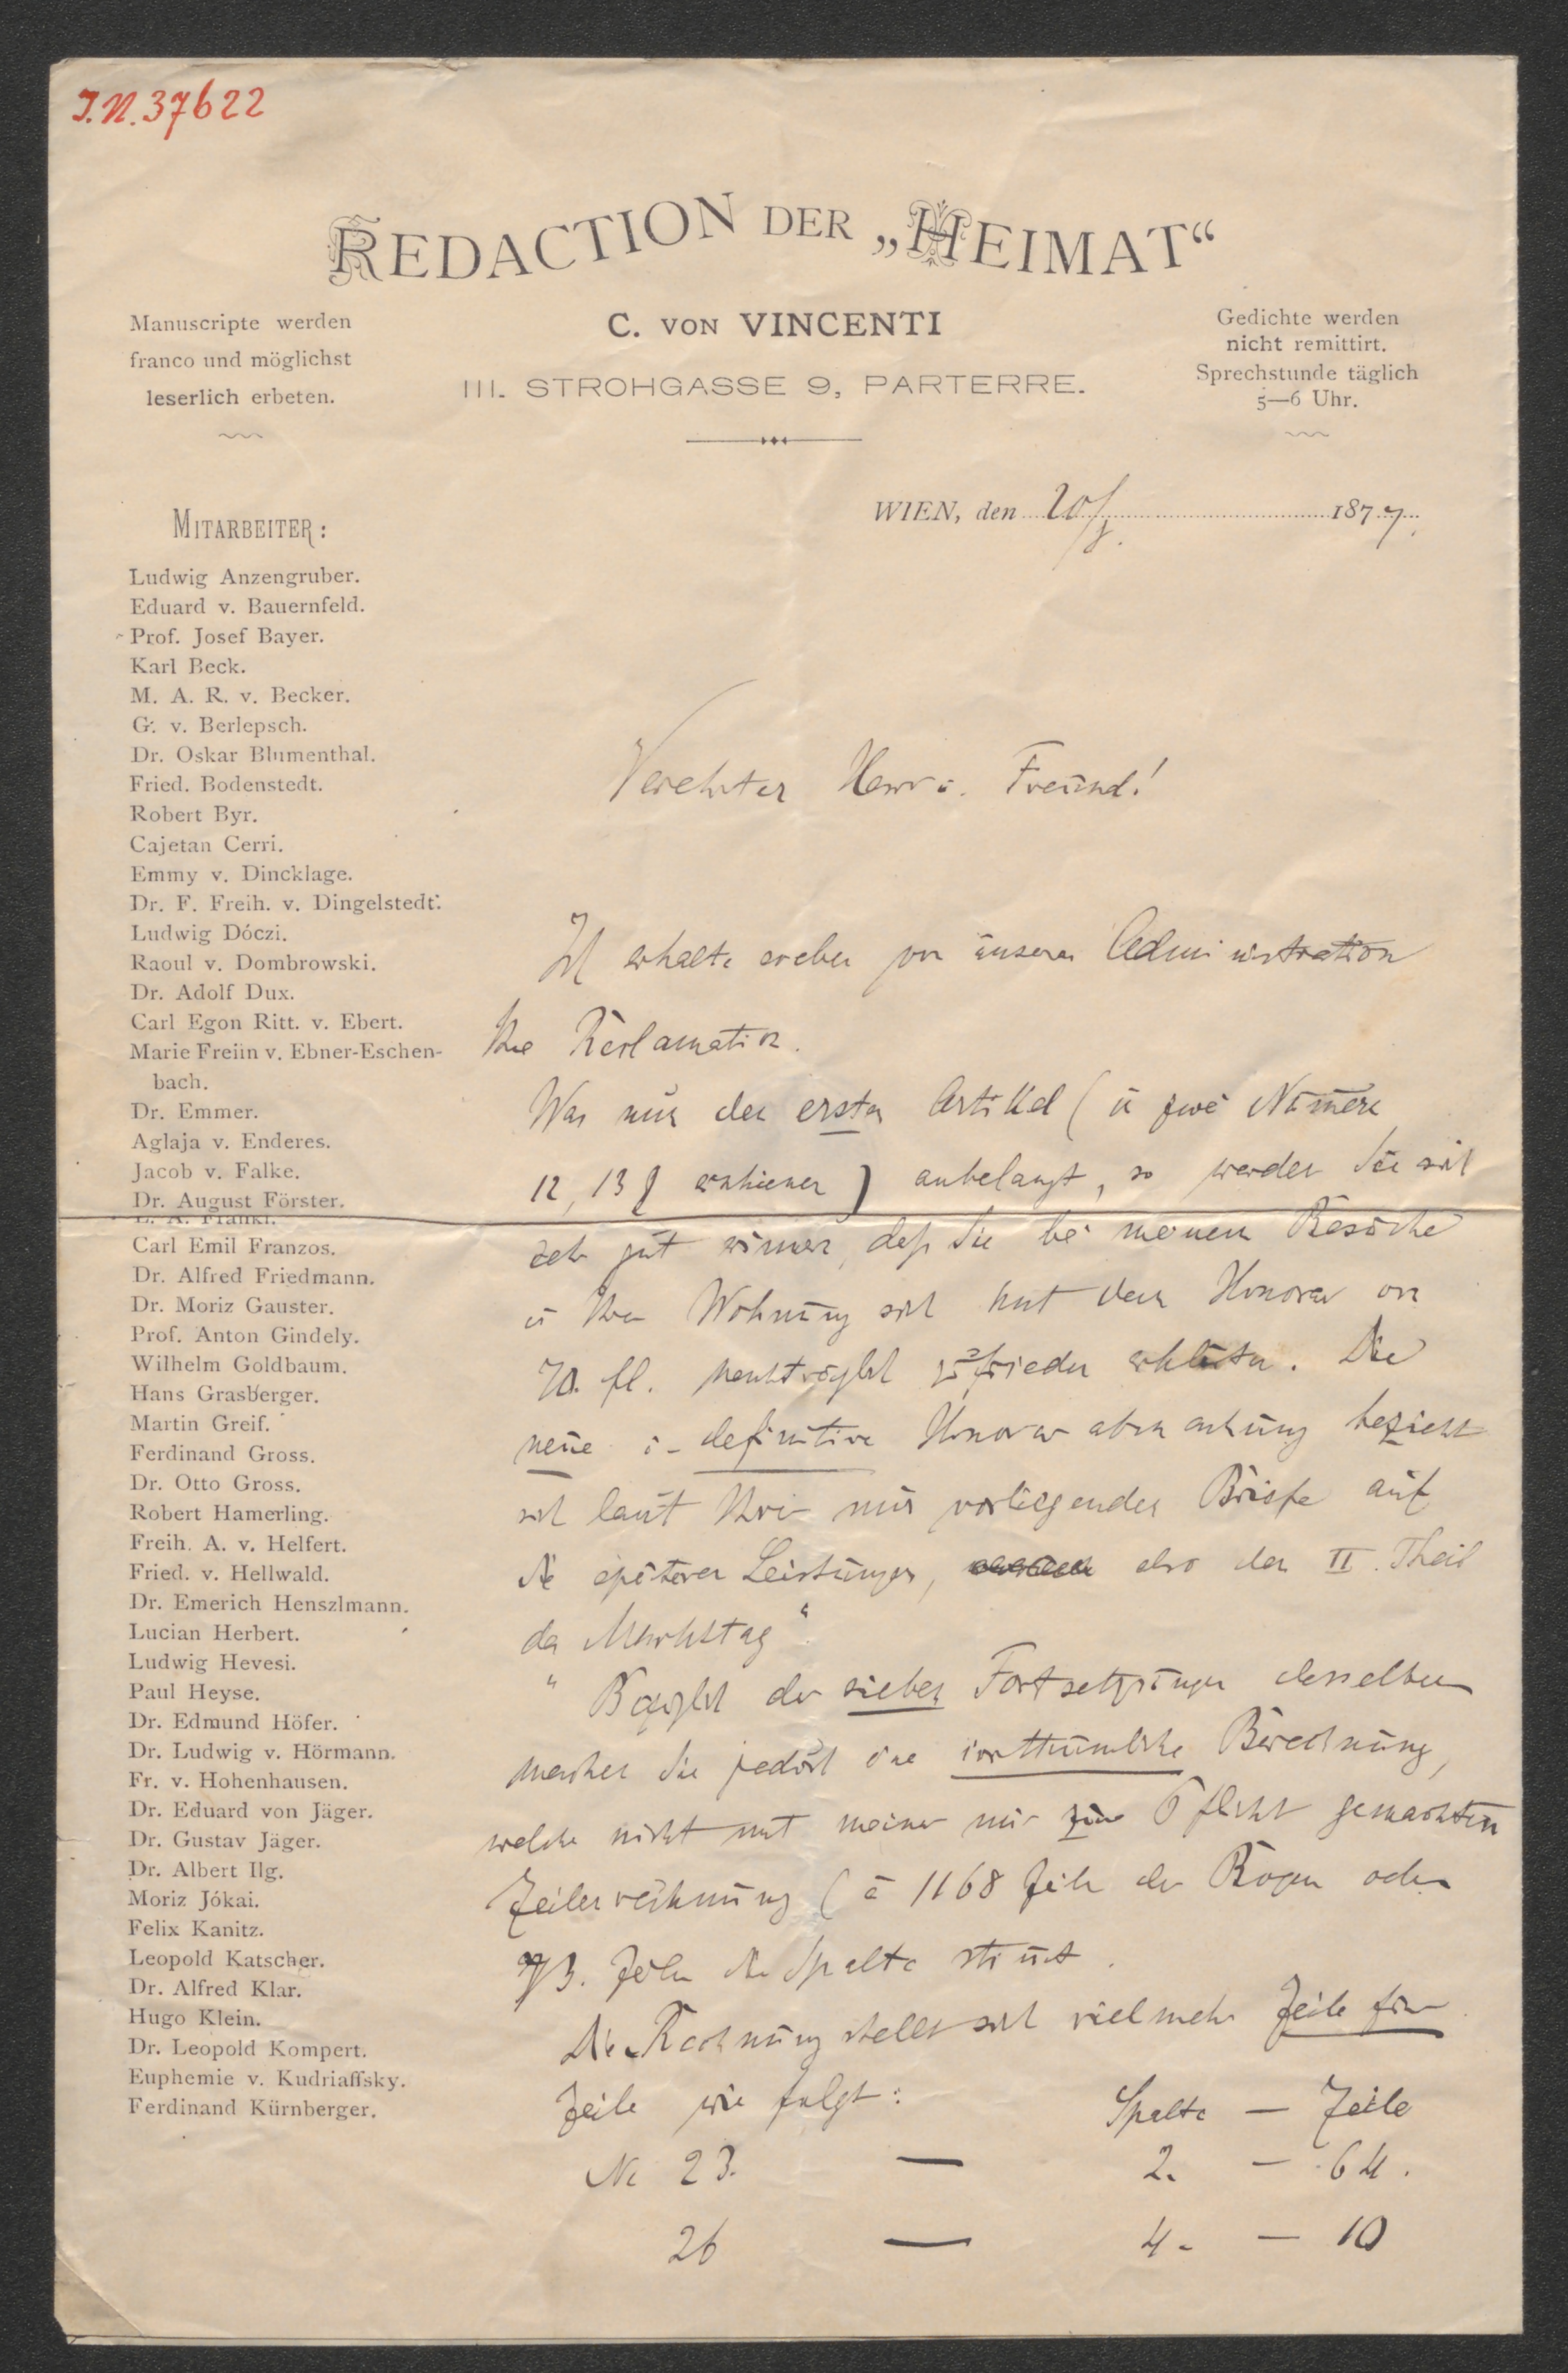 J.N. 37622
REDACTION DER „HEIMAT“
Manuscripte werden
franco und möglichst
leserlich erbeten.
C. VON VINCENTI
III. STROHGASSE 9, PARTERRE.
Gedichte werden
nicht remittirt.
Sprechstunde täglich
5—6 Uhr.
WIEN, den 20/ 1877.
MITARBEITER:
Ludwig Anzengruber.
Eduard v. Bauernfeld.
Prof. Josef Bayer.
Karl Beck.
M. A. R. v. Becker.
G. v. Berlepsch.
Dr. Oskar Blumenthal.
Fried. Bodenstedt.
Robert Byr.
Cajetan Cerri.
Emmy v. Dincklage.
Dr. F. Freih. v. Dingelstedt.
Ludwig Dóczi.
Raoul v. Dombrowski.
Dr. Adolf Dux.
Carl Egon Ritt. v. Ebert.
Marie Freiin v. Ebner-Eschen-
bach.
Dr. Emmer.
Aglaja v. Enderes.
Jacob v. Falke.
Dr. August Förster.
L. A. Frankl.
Carl Emil Franzos.
Dr. Alfred Friedmann.
Dr. Moriz Gauster.
Prof. Anton Gindely.
Wilhelm Goldbaum.
Hans Grasberger.
Martin Greif.
Ferdinand Gross.
Dr. Otto Gross.
Robert Hamerling.
Freih. A. v. Helfert.
Fried. v. Hellwald.
Dr. Emerich Henszlmann.
Lucian Herbert.
Ludwig Hevesi.
Paul Heyse.
Dr. Edmund Höfer.
Dr. Ludwig v. Hörmann.
Fr. v. Hohenhausen.
Dr. Eduard von Jäger.
Dr. Gustav Jäger.
Dr. Albert Ilg.
Moriz Jókai.
Felix Kanitz.
Leopold Katscher.
Dr. Alfred Klar.
Hugo Klein.
Dr. Leopold Kompert.
Euphemie v. Kudriaffsky.
Ferdinand Kürnberger.
Verehrter Herr u. Freund!
Ich erhalte soeben von unserer Administration
Ihre Reclamation.
Was nun den ersten Artikel (in zwei Numern
12, 13 erschienen) anbelangt, so werden Sie sich
sehr gut erinnern, daß Sie bei meinem Besuche
in Ihrer Wohnung sich mit dem Honorar von
70. fl. nachträglich zufrieden erklärten. Die
neue u. definitive Honorarabmachung bezieht
sich laut Ihrem mir vorliegenden Briefe auf
die späteren Leistungen, also den II. Theil
der „Markttag“.
Bezüglich der sieben Fortsetzungen desselben
machen Sie jedoch eine irrthümliche Berechnung,
welche nicht mit meiner mir zur Pflicht gemachten
Zeilenrechnung (à 1168 Zeilen der Bogen oder
73. Zeilen die Spalte stimt.
Die Rechnung stellt sich vielmehr Zeile für
Zeile wie folgt: Spalte — Zeile
No 23. — 2. — 64.
26 — 4. — 10